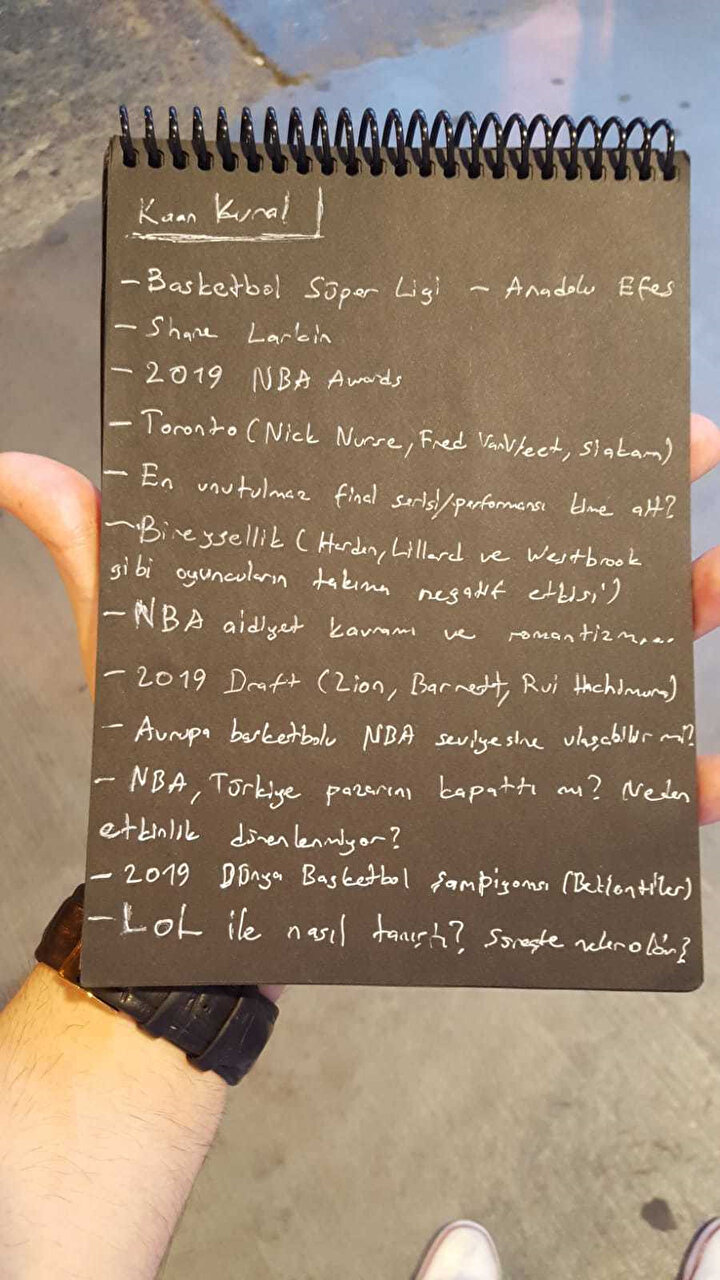 Kaan Kural
- Basketbol Süper Ligi - Anadolu Efes
- Shane Larkin
- 2019 NBA Awards
- Toronto (Nick Nurse, Fred VanVleet, Siakam)
- En unutulmaz final serisi/performansı kime ait?
- Bireysellik (Harden, Lillard ve Westbrook
gibi oyuncuların takıma negatif etkisi)
- NBA aidiyet kavramı ve romantizm...
- 2019 Draft (Zion, Barrett, Rui Hachimura)
- Avrupa basketbolu NBA seviyesine ulaşabilir mi?
- NBA, Türkiye pazarını kapattı mı? Neden
etkinlik düzenlenmiyor?
- 2019 Dünya Basketbol Şampiyonası (Beklentiler)
- LoL ile nasıl tanıştı? Süreçte neler oldu?